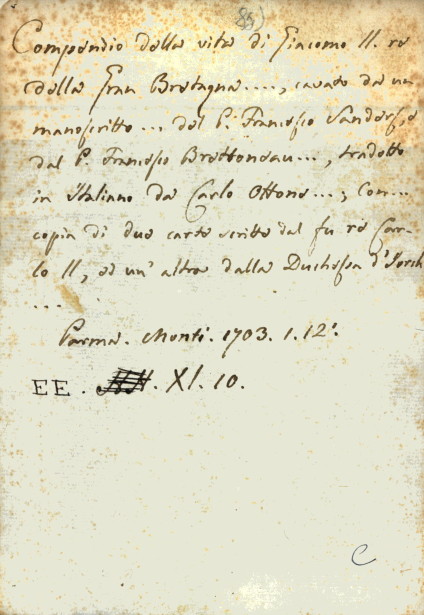 85)
Compendio della vita di Giacomo II. re
della Gran Bretagna...., cavato da un
manoscritto... del P. Francesco Sanders, e
dal P. Francesco Brettoneau..., tradotto
in Italiano da Carlo Ottone...; Con...
copia di due carte scritte dal fu re Car-
lo II, ed un' altra dalla Duchessa d'Jorch
...
Parma. Monti. 1703. 1. 12°.
EE. XI. 10.
C